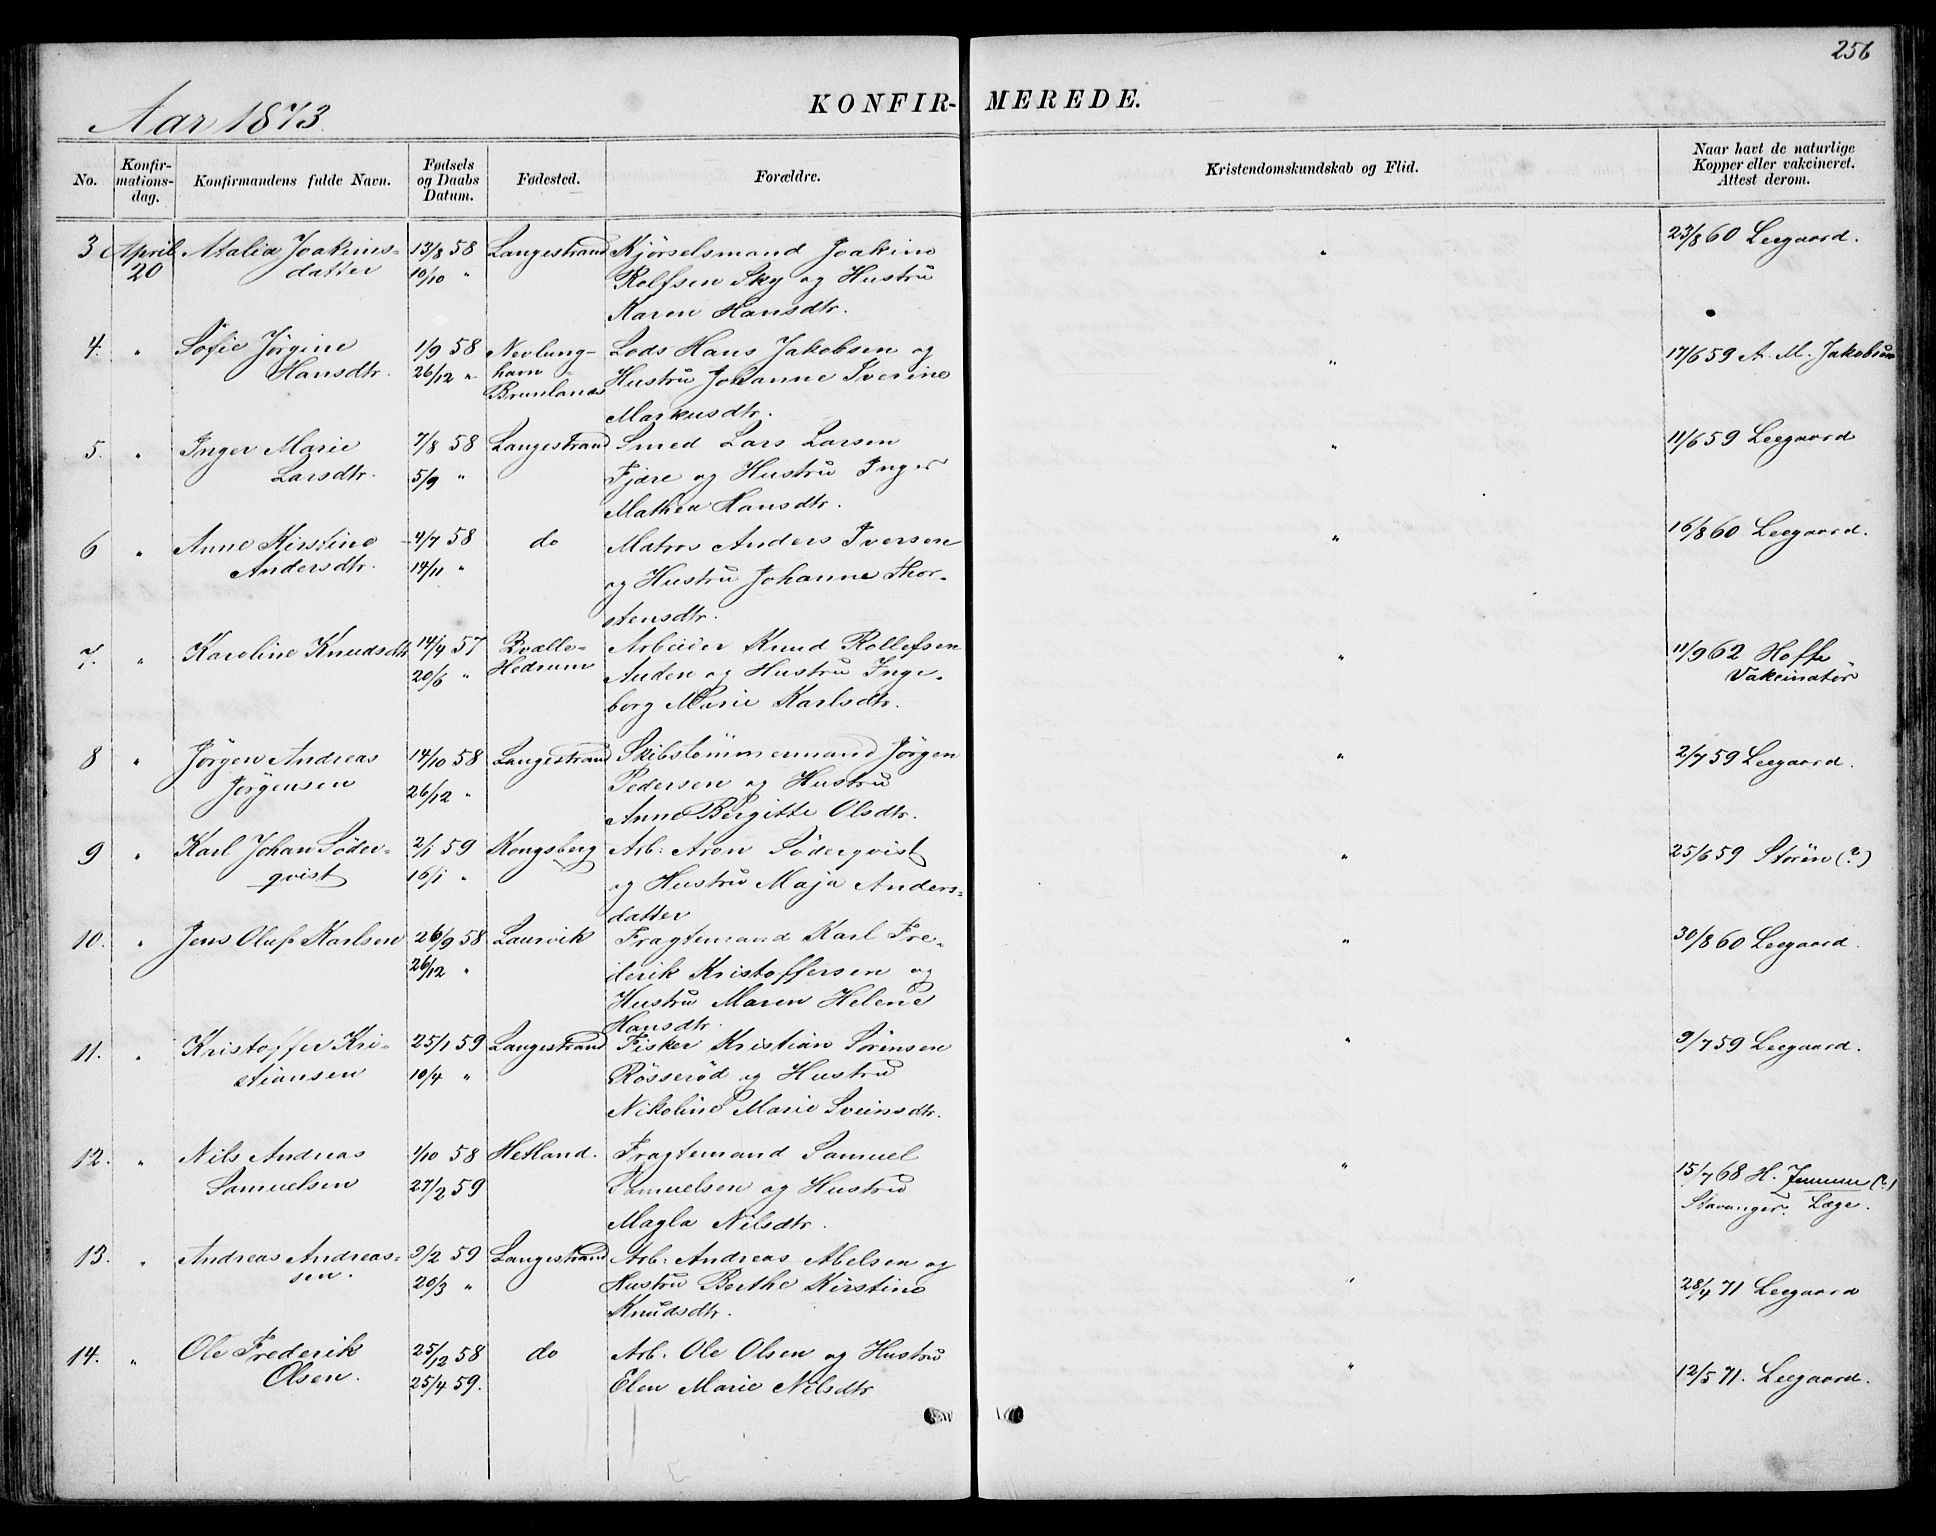 256
Aar 1873.
KONFIR- MEREDE.
No. Konfir-mations-dag. Konfirmandens fulde Navn. Fødsels og Daabs Datum. Fødested. Forældre. Kristendomskundskab og Flid. Naar havt de naturlige Kopper eller vakcineret. Attest derom.
3 April Atalia Joakims- 13/8 58 Langestrand Kjörselsmand Joakim " 23/8 60 Leegaard.
20 datter 10/10 " Rolfsen Sky og Hustru
Karen Hansdtr.
4. " Sofie Jörgine 1/9 58 Nevlung- Lods Hans Jakobsen og " 17/6 59 A. M. Jakobsen
Hansdtr. 26/12 " havn Hustru Johanne Iverine
Brunlanäs Markusdtr.
5. " Inger Marie 7/8 58 Langestrand Smed Lars Larsen " 11/6 59 Leegaard
Larsdtr. 5/9 " Fjære og Hustru Inger
Mathea Hansdtr.
6 " Anne Kirstine 4/7 58 do Matros Anders Iversen " 16/8 60 Leegaard.
Andersdtr. 14/11 " og Hustru Johanne Thor-
stensdtr.
7. " Karoline Knudsdtr 14/4 57 Kvælle- Arbeider Knud Rollefsen " 11/9 62 Hoffe
20/6 " Hedrum Auden og Hustru Inge- Vakcinatör
borg Marie Karlsdtr.
8 " Jörgen Andreas 14/10 58 Langestrand Skibstömmermand Jörgen " 2/7 59 Leegaard.
Jörgensen 26/12 " Pedersen og Hustru
Anne Birgitte Olsdtr.
9 " Karl Johan Söder- 2/1 59 Kongsberg Arb: Aron Söderqvist " 25/6 59 Stören (?)
qvist 16/1 " og Hustru Maja Anders-
datter
10. " Jens Oluf Karlsen 26/9 58 Laurvik Fragtemand Karl Fre- " 30/8 60 Leegaard.
26/12 " derik Kristoffersen og
Hustru Maren Helene
Hansdtr.
11. " Kristoffer Kri- 25/1 59 Langestrand Fisker Kristian Sörensen " 9/7 59 Leegaard.
stiansen 10/4 " Rösseröd og Hustru
Nikoline Marie Sveinsdtr.
12. " Nils Andreas 1/10 58 Hetland. Fragtemand Samuel " 15/7 68 H. (?)
Samuelsen 27/2 59 Samuelsen og Hustru Stavanger. Læge.
Magla Nilsdtr.
13. " Andreas Andreas- 9/2 59 Langestrand Arb: Andreas Abelsen og "
sen. 20/3 " Hustru Berthe Kirstine 28/4 71 Leegaard
Knudsdtr.
14. " Ole Frederik 25/12 58 do Arb. Ole Olsen og Hustru "
Olsen. 25/4 59. Elen Marie Nilsdtr 12/5 71. Leegaard.